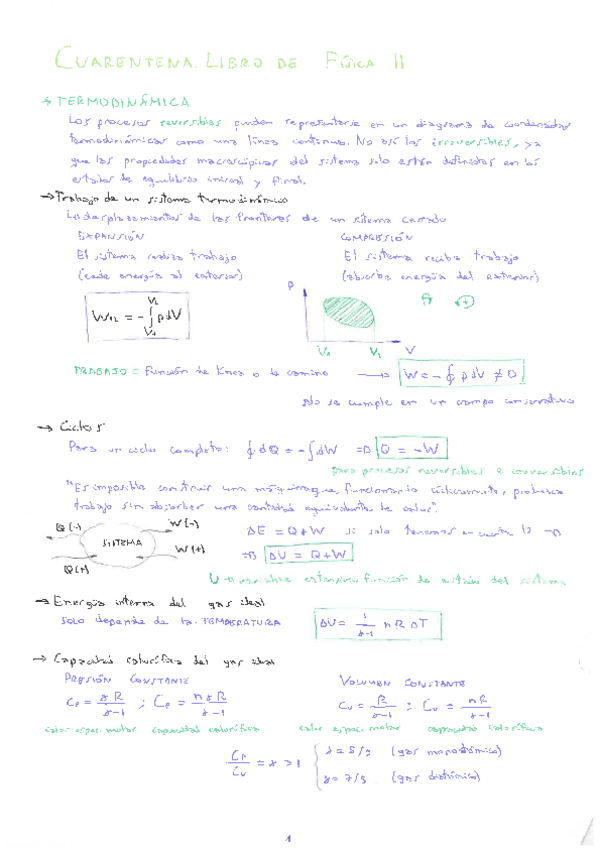 CUARENTENA. LIBRO DE FÍSICA II
→ TERMODINÁMICA
Los procesos reversibles pueden representarse en un diagrama de coordenadas
termodinámicas como una línea continua. No así los irreversibles, ya
que las propiedades macroscópicas del sistema solo están definidas en los
estados de equilibrio inicial y final.
→ Trabajo de un sistema termodinámico
desplazamientos de las fronteras de un sistema cerrado
EXPANSIÓN COMPRESIÓN
El sistema realiza trabajo El sistema recibe trabajo
(cede energía al exterior) (absorbe energía del exterior)
W₁₂ = -∫ p dV
V₁ V₂
P
V₁ V₂ V
TRABAJO = Función de línea o de camino → W = -∮ p dV ≠ 0
No se cumple en un campo conservativo
→ Ciclos
Para un ciclo completo: ∮ dQ = -∫ dW => Q = -W
para procesos reversibles e irreversibles
"Es imposible construir una máquina que, funcionando cíclicamente, produzca
trabajo sin absorber una cantidad equivalente de calor".
Q (-) W (-) ΔE = Q + W si solo tenemos en cuenta
SISTEMA
W (+) => ΔU = Q + W
Q (+)
U → variable extensiva función de estado del sistema
→ Energía interna del gas ideal
SOLO depende de la TEMPERATURA ΔU = 1/(γ-1) n R ΔT
→ Capacidad calorífica del gas ideal
PRESIÓN CONSTANTE VOLUMEN CONSTANTE
cₚ = γR/(γ-1) ; Cₚ = nγR/(γ-1) cᵥ = R/(γ-1) ; Cᵥ = nR/(γ-1)
calor espec. molar capacidad calorífica calor espec. molar capacidad calorífica
Cₚ/Cᵥ = γ > 1 { γ = 5/3 (gas monoatómico)
γ = 7/5 (gas diatómico)
1